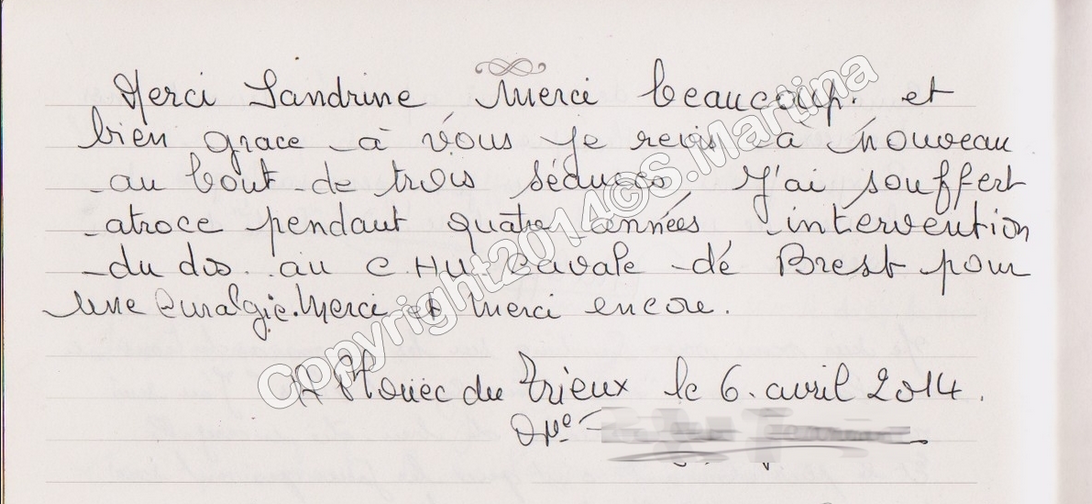 Merci Sandrine Merci beaucoup. et
bien grace à vous je revis à nouveau
au bout de trois séances, J'ai souffert
atroce pendant quatre années intervention
du dos au CHU cavale de Brest pour
une Cruralgie. Merci et Merci encore.
A Plouëc du Trieux le 6. avril 2014.
Mme
Copyright2014©S.Martina